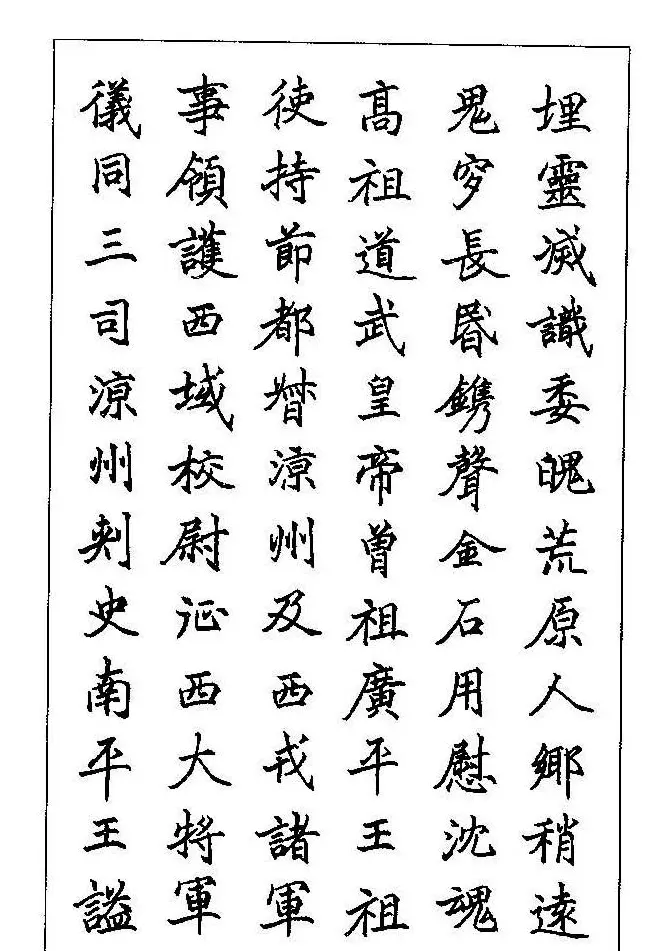 埋靈滅識委魄荒原人鄉稍遠
鬼穸長昏鐫聲金石用慰沈魂
高祖道武皇帝曾祖廣平王祖
使持節都督涼州及西戎諸軍
事領護西域校尉征西大將軍
儀同三司涼州刺史南平王謚